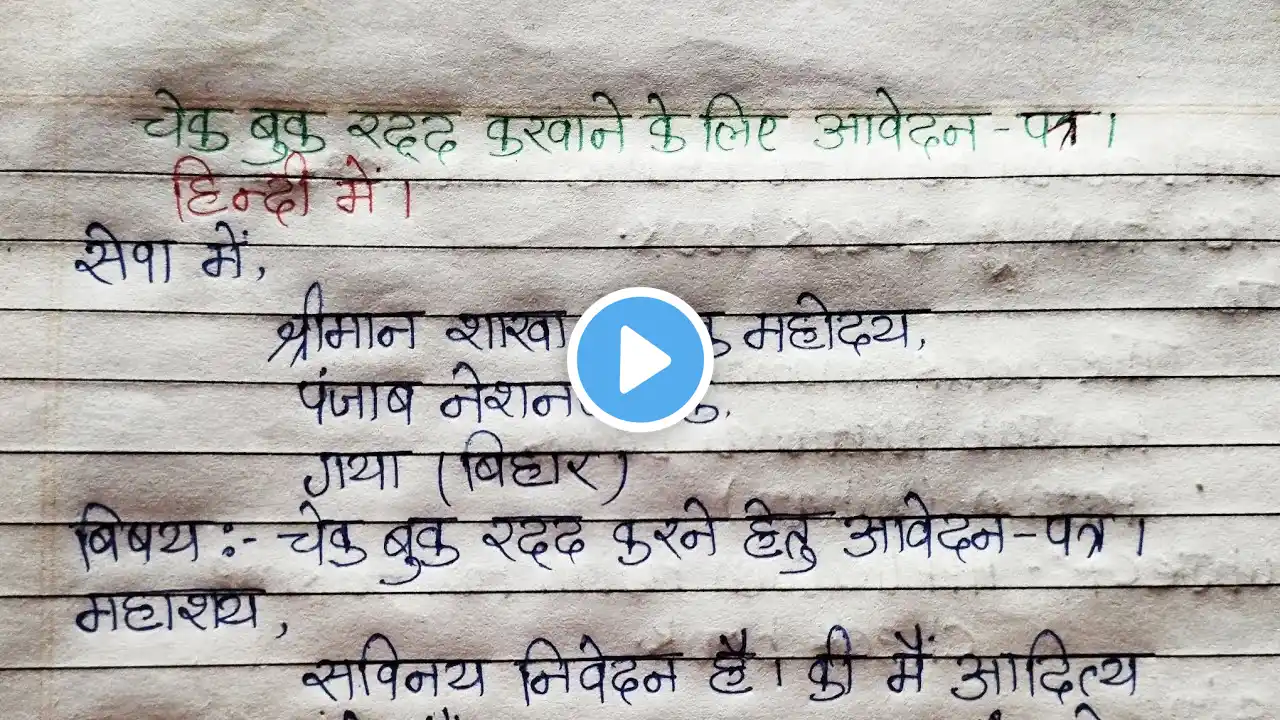 चेक बुक रद्द करवाने के लिए आवेदन-पत्र।
हिन्दी में।
सेवा में,
श्रीमान शाखा महोदय,
पंजाब
गया (बिहार)
बिषय :- चेक बुक रद्द करने हेतु आवेदन-पत्र।
महाशय,
सविनय निवेदन है। की मैं आदित्य